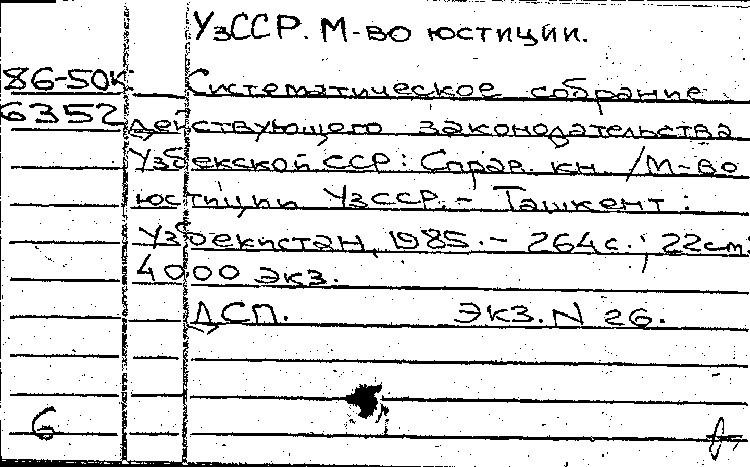 УзССР. М-во юстиции.
86-50к Систематическое собрание
6352 действующего законодательства
Узбекской ССР: Справ. кн. /М-во
юстиции УзССР. - Ташкент:
Узбекистан, 1985. - 264с.; 22см.
4000 экз.
ДСП. Экз. N 26.
6